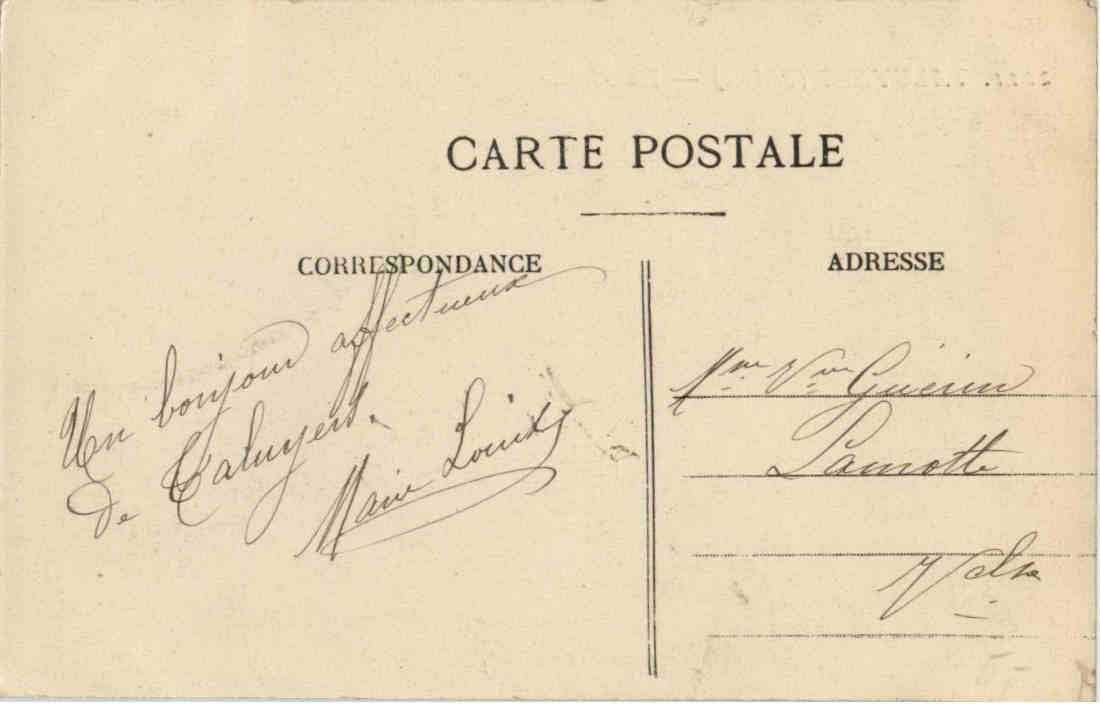 CARTE POSTALE
CORRESPONDANCE
ADRESSE
Un bonjour affectueux
de Taluyers.
Marie Louise
Mme Vve Guérin
Lamotte